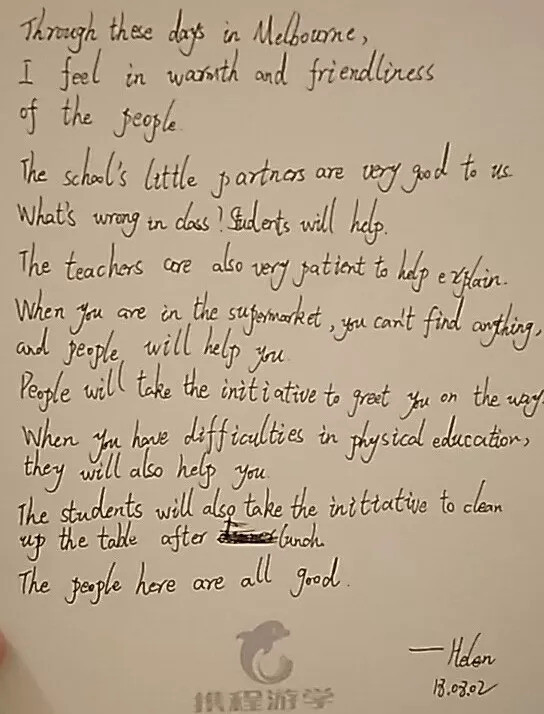 Through these days in Melbourne,
I feel in warmth and friendliness
of the people.
The school's little partners are very good to us.
What's wrong in class? Students will help.
The teachers are also very patient to help explain.
When you are in the supermarket, you can't find anything,
and people will help you.
People will take the initiative to greet you on the way.
When you have difficulties in physical education,
they will also help you.
The students will also take the initiative to clean
up the table after lunch.
The people here are all good.
—Helen
18.03.02
携程游学